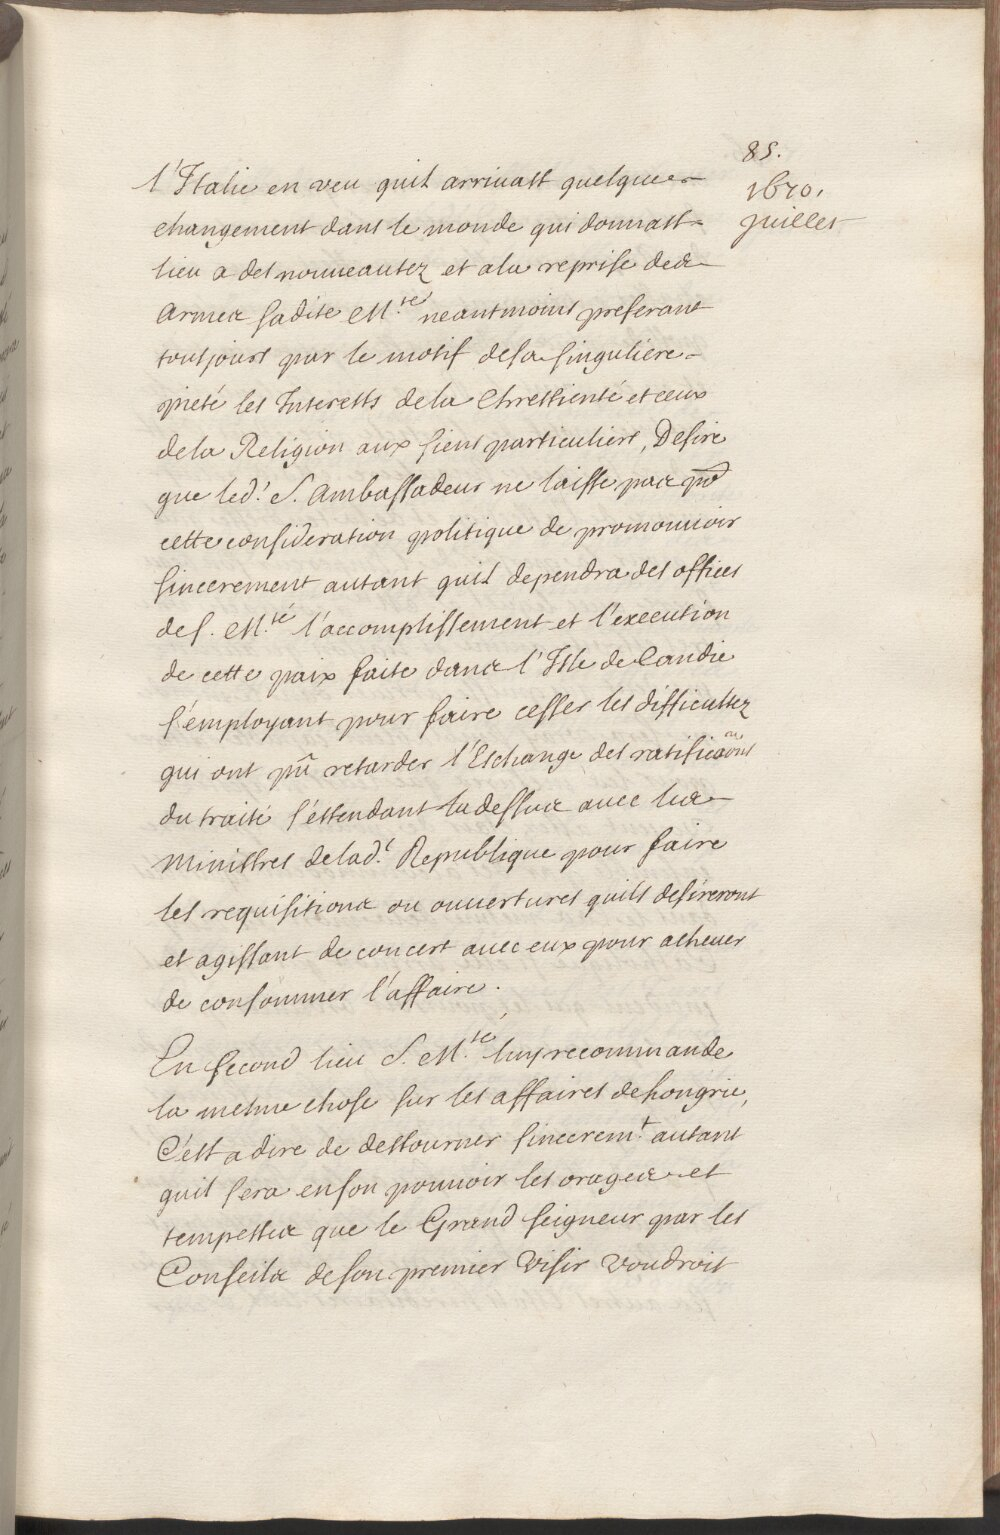 85.
1670.
Juillet
l'Italie en veu quil arrivast quelque
changement dans le monde qui donnast
lieu a des nouueautez et ala reprise des
Armes sadite M.té neantmoins preferant
tousjours par le motif desa singuliere
pieté les Interests dela Chrestienté et ceux
dela Religion aux siens particuliers, Desire
que led.t S. Ambassadeur ne laisse pas po.r
cette consideration politique de promouuoir
sincerement autant quil dependra des offices
des. M.té l'accomplissement et l'execution
de cette paix faite dans l'Isle de Candie
s'employant pour faire cesser les difficultez
qui ont pû retarder l'Eschange des ratificaõns
du traité s'estendant la dessus auec les
Ministres delad.t Republique pour faire
les requisitions ou ouuertures quils desireront
et agissant de concert auec eux pour acheuer
de consommer l'affaire.
En second lieu S. M.té luy recommande
la mesme chose sur les affaires de hongrie,
C'est a dire de destourner sincerem.t autant
quil sera enson pouuoir les orages et
tempestes que le Grand Seigneur par les
Conseils deson premier Visir voudroit